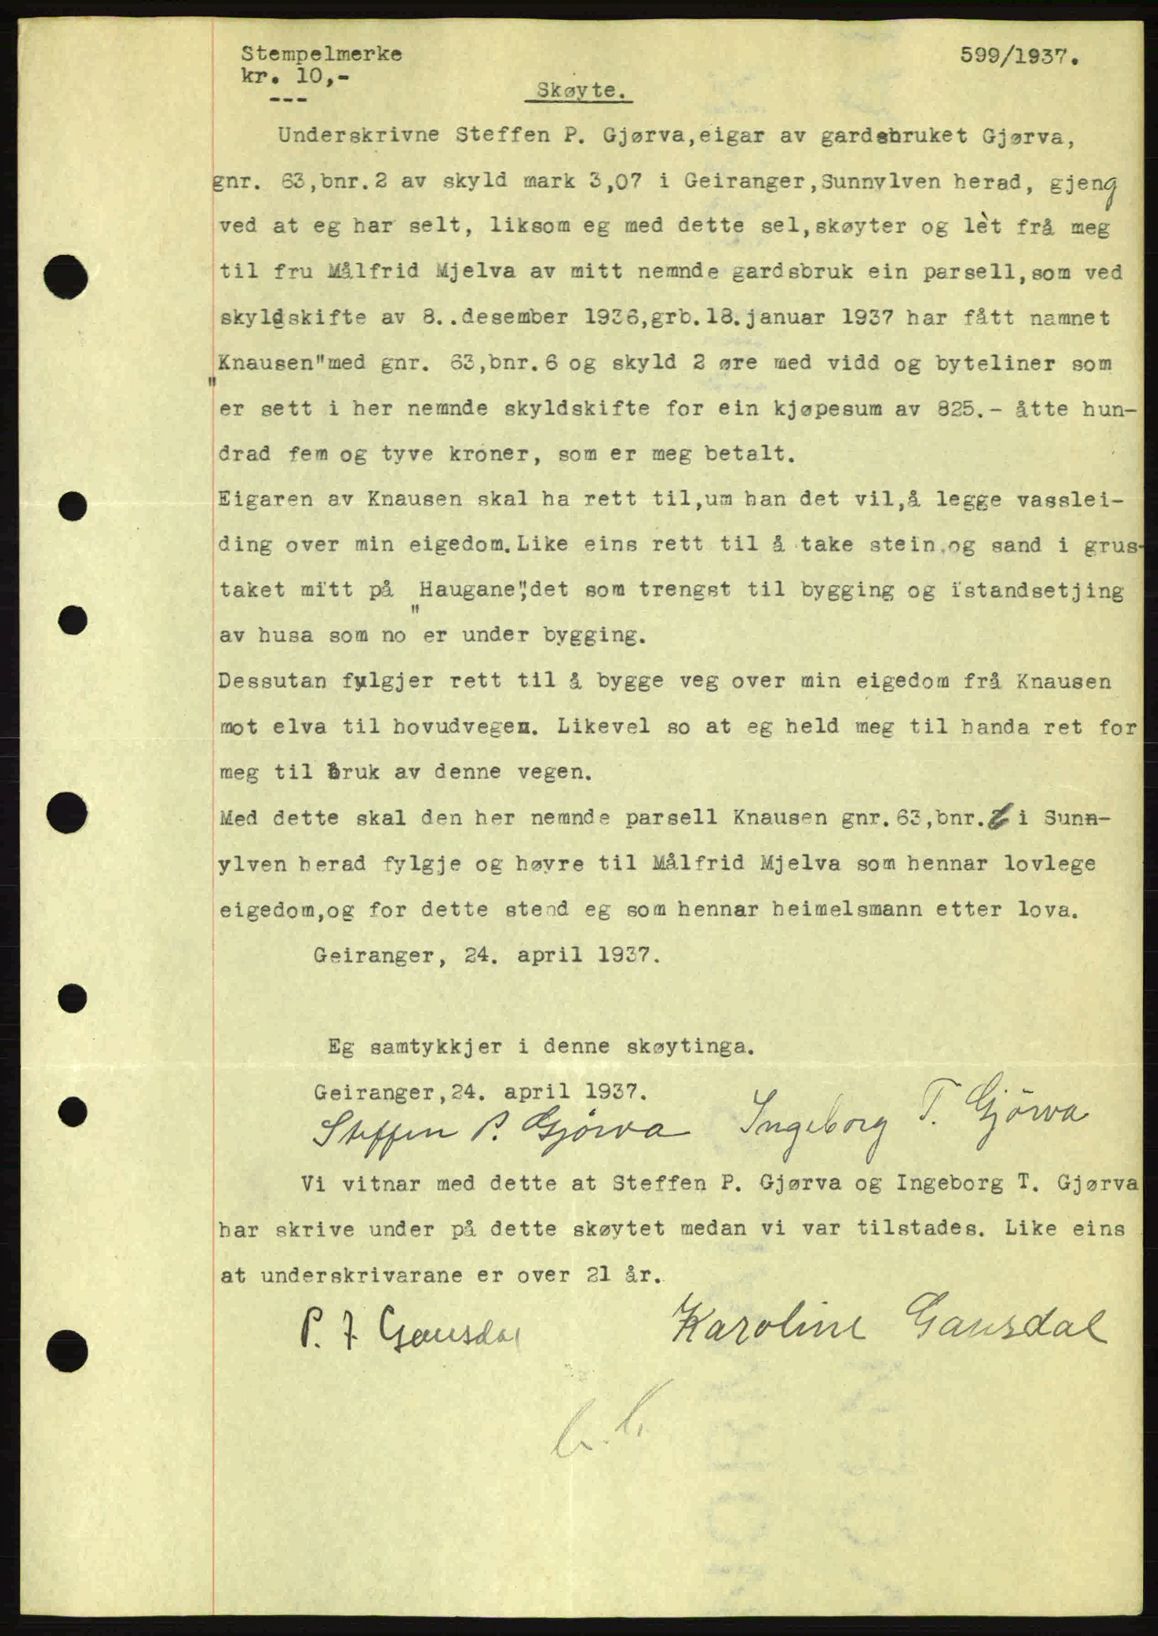 Stempelmerke
kr. 10,-
---
599/1937.
Skøyte.
Underskrivne Steffen P. Gjørva,eigar av gardsbruket Gjørva,
gnr. 63,bnr.2 av skyld mark 3,07 i Geiranger,Sunnylven herad, gjeng
ved at eg har selt, liksom eg med dette sel,skøyter og lèt frå meg
til fru Målfrid Mjelva av mitt nemnde gardsbruk ein parsell,som ved
skyldskifte av 8..desember 1936,grb.18.januar 1937 har fått namnet
"Knausen"med gnr. 63,bnr.6 og skyld 2 øre med vidd og byteliner som
er sett i her nemnde skyldskifte for ein kjøpesum av 825.- åtte hun-
drad fem og tyve kroner, som er meg betalt.
Eigaren av Knausen skal ha rett til,um han det vil,å legge vasslei-
ding over min eigedom.Like eins rett til å take stein og sand i grus-
taket mitt på "Haugane",det som trengst til bygging og istandsetjing
av husa som no er under bygging.
Dessutan fylgjer rett til å bygge veg over min eigedom frå Knausen
mot elva til hovudvegen. Likevel so at eg held meg til handa ret for
meg til bruk av denne vegen.
Med dette skal den her nemnde parsell Knausen gnr.63,bnr.6 i Sunn-
ylven herad fylgje og høyre til Målfrid Mjelva som hennar lovlege
eigedom,og for dette stend eg som hennar heimelsmann etter lova.
Geiranger, 24. april 1937.
Eg samtykkjer i denne skøytinga.
Geiranger,24. april 1937.
Steffen P. Gjörva Ingeborg T. Gjörva
Vi vitnar med dette at Steffen P. Gjørva og Ingeborg T. Gjørva
har skrive under på dette skøytet medan vi var tilstades. Like eins
at underskrivarane er over 21 år.
P. J Gausdal Karoline Gausdal